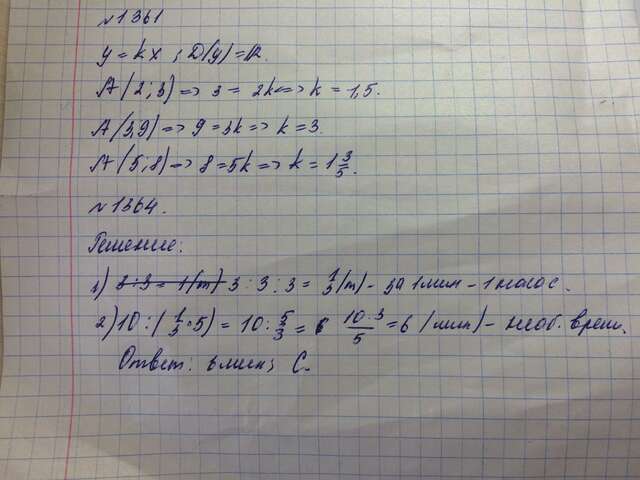 №1361
y = kx ; D(y) = R.
A(2;3) => 3 = 2k <=> k = 1,5.
A(3,9) => 9 = 3k => k = 3.
A(5;8) => 8 = 5k => k = 1 3/5.
№1364.
Решение:
1) 3 : 3 = 1(т) 3 : 3 : 3 = 1/3 (т) - за 1 мин - 1 насос.
2) 10 : (1/3 · 5) = 10 : 5/3 = 10·3/5 = 6 (мин) - необ. врем.
Ответ: 6 мин; С.